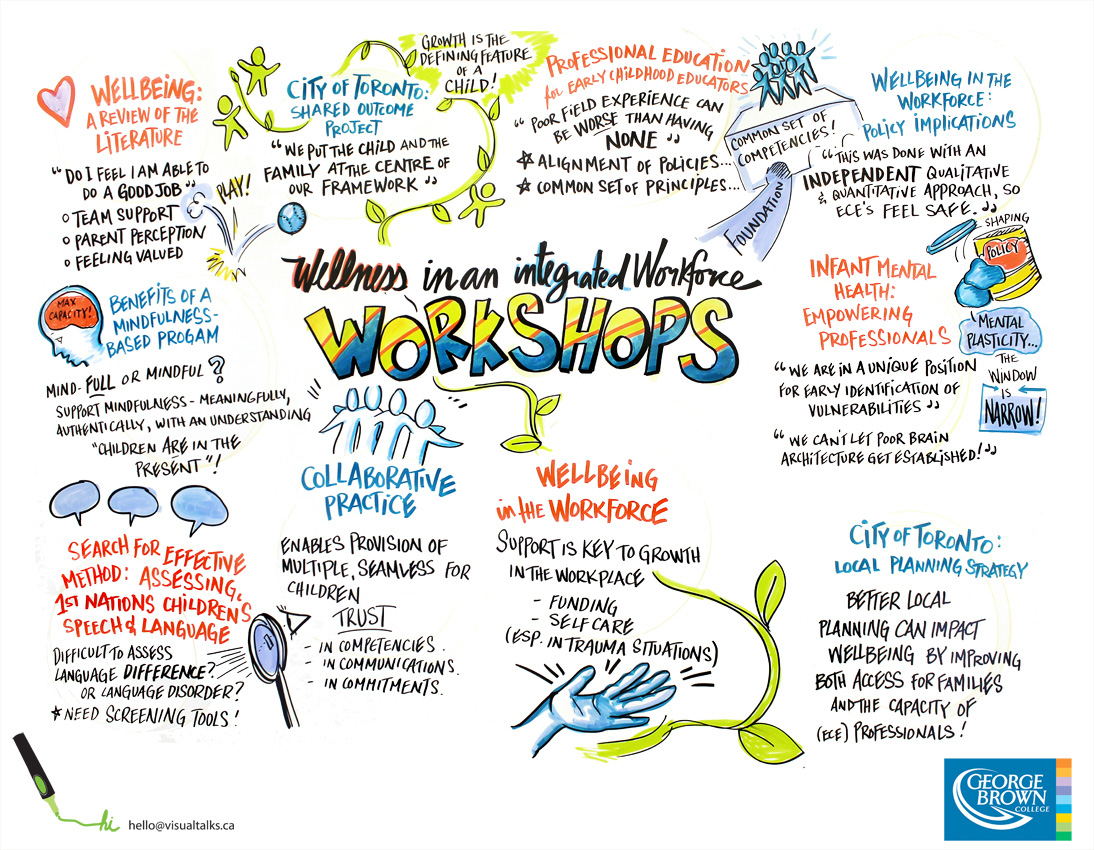 WELLBEING:
A REVIEW OF THE
LITERATURE
"DO I FEEL I AM ABLE TO
DO A GOOD JOB"
o TEAM SUPPORT
o PARENT PERCEPTION
o FEELING VALUED
PLAY!
CITY OF TORONTO:
SHARED OUTCOME
PROJECT
"WE PUT THE CHILD AND THE
FAMILY AT THE CENTRE OF
OUR FRAMEWORK"
GROWTH IS THE
DEFINING FEATURE
OF A
CHILD!
PROFESSIONAL EDUCATION
for EARLY CHILDHOOD EDUCATORS
"POOR FIELD EXPERIENCE CAN
BE WORSE THAN HAVING
NONE"
☆ ALIGNMENT OF POLICIES...
☆ COMMON SET OF PRINCIPLES...
COMMON SET OF
COMPETENCIES!
FOUNDATION
WELLBEING IN THE
WORKFORCE:
POLICY IMPLICATIONS
"THIS WAS DONE WITH AN
INDEPENDENT QUALITATIVE
& QUANTITATIVE APPROACH, SO
ECE'S FEEL SAFE."
Wellness in an integrated Workforce
WORKSHOPS
MAX
CAPACITY!
BENEFITS OF A
MINDFULNESS-
BASED PROGAM
MIND-FULL OR MINDFUL?
SUPPORT MINDFULNESS - MEANINGFULLY,
AUTHENTICALLY, WITH AN UNDERSTANDING
"CHILDREN ARE IN THE
PRESENT"!
SHAPING
POLICY
INFANT MENTAL
HEALTH:
EMPOWERING
PROFESSIONALS
"WE ARE IN A UNIQUE POSITION
FOR EARLY IDENTIFICATION OF
VULNERABILITIES"
"WE CAN'T LET POOR BRAIN
ARCHITECTURE GET ESTABLISHED!"
'MENTAL
PLASTICITY...
THE
WINDOW
IS
NARROW!
SEARCH FOR EFFECTIVE
METHOD: ASSESSING
1ST NATIONS CHILDREN'S
SPEECH & LANGUAGE
DIFFICULT TO ASSESS
LANGUAGE DIFFERENCE?
OR LANGUAGE DISORDER?
☆ NEED SCREENING TOOLS!
COLLABORATIVE
PRACTICE
ENABLES PROVISION OF
MULTIPLE, SEAMLESS FOR
CHILDREN
TRUST
- IN COMPETENCIES.
- IN COMMUNICATIONS.
- IN COMMITMENTS.
WELLBEING
in the WORKFORCE
SUPPORT IS KEY TO GROWTH
IN THE WORKPLACE
- FUNDING
- SELF CARE
(ESP. IN TRAUMA SITUATIONS)
CITY OF TORONTO:
LOCAL PLANNING STRATEGY
BETTER LOCAL
PLANNING CAN IMPACT
WELLBEING BY IMPROVING
BOTH ACCESS FOR FAMILIES
AND THE CAPACITY OF
(ECE) PROFESSIONALS!
hi hello@visualtalks.ca
GEORGE
BROWN
COLLEGE